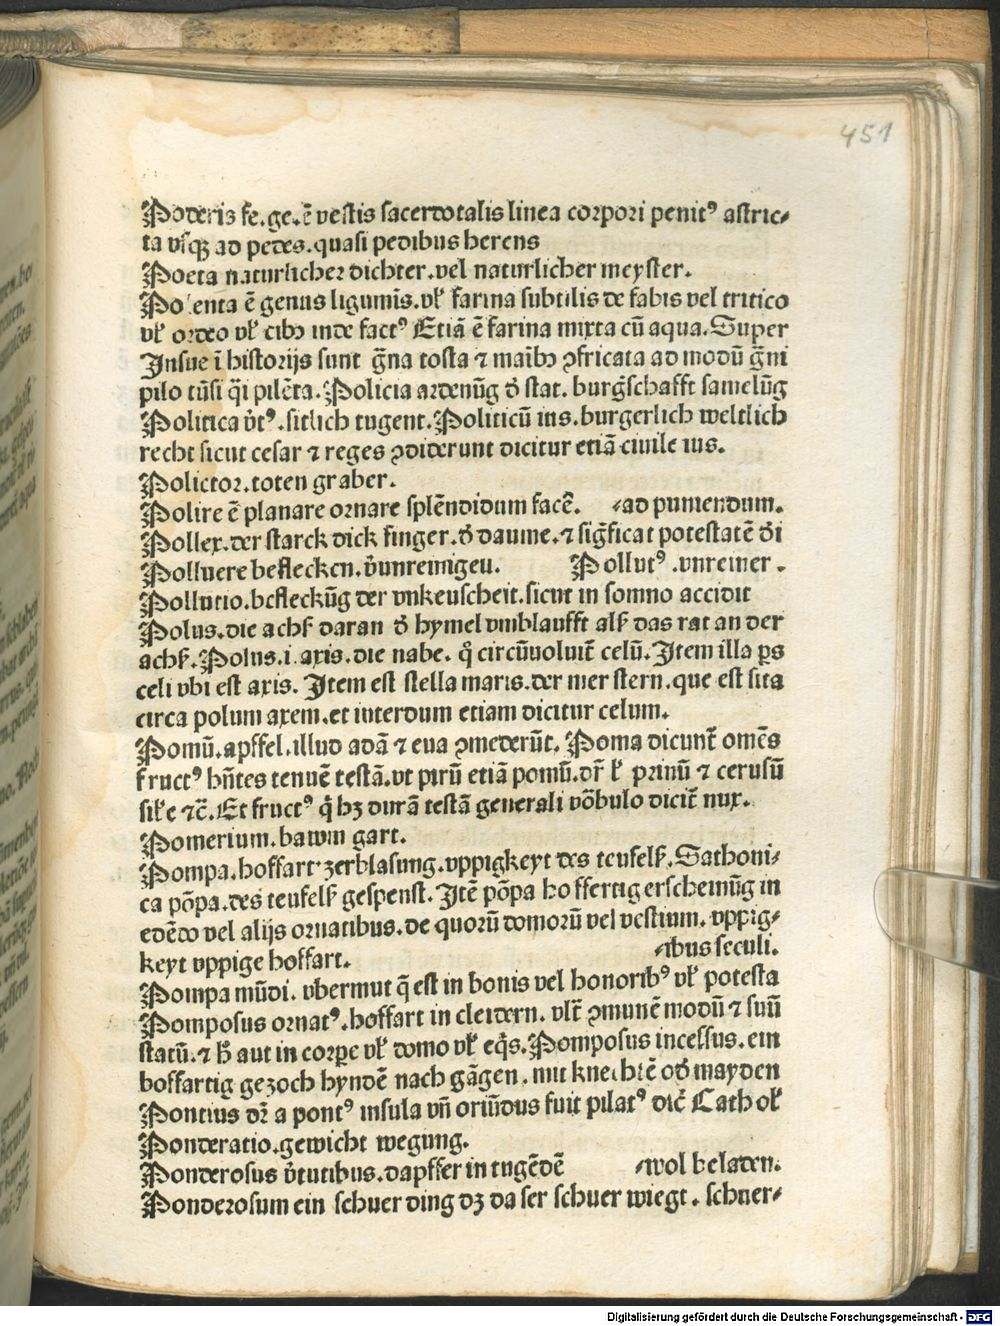 451
Poderis fe.ge.ē vestis sacerdotalis linea corpori penitꝰ astric⸗
ta vsqꝫ ad pedes.quasi pedibus herens
Poeta naturlicher dichter.vel naturlicher meyster.
Polenta ē genus liguminis.vl̕ farina subtilis de fabis vel tritico
vl̕ ordeo vl̕ cibꝰ inde factꝰ Etiā ē farina mixta cū aqua.Super
Josue ī historijs sunt g̃na tosta ⁊ maībꝰ ꝯfricata ad modū g̃ni
pilo tūsi q̄i pilēta.Policia ardenūg d̕ stat.burg̃schafft samelūg
Politica v̕tꝰ.sitlich tugent.Politicū ius.burgerlich weltlich
recht sicut cesar ⁊ reges ꝯdiderunt dicitur etiā ciuile ius.
Polictor.toten graber.
Polire ē planare ornare splēndidum facē. ⸗ad puniendum.
Pollex.der starck dick finger.d̕ daume.⁊ sig̃ficat potestatē d̕i
Polluere beflecken.v̕unreinigen. Pollutꝰ.vnreiner.
Pollutio.befleckūg der vnkeuscheit.sicut in somno accidit
Polus.die achſ daran d̕ hymel vmblaufft alſ das rat an der
achſ.Polus.i.axis.die nabe.q̊ circūuoluit̄ celū.Item illa ꝑs
celi vbi est axis. Item est stella maris.der mer stern.que est sita
circa polum axem.et interdum etiam dicitur celum.
Pomū.apffel.illud adā ⁊ eua ꝯmederūt.Poma dicunt̄ omēs
fructꝰ hn̄tes tenuē testā.vt pirū etiā pomū.dr̄ l̕ prinū ⁊ cerusū
sil̕e ⁊c̄.Et fructꝰ q̊ hꝫ durā testā generali vōbulo dicit̄ nux.
Pomerium.bawm gart.
Pompa.hoffart zerblasung.vppigkeyt des teufelſ.Sathoni⸗
ca pōpa.des teufelſ gespenst.Itē pōpa hoffertig erscheinūg in
edēdo vel alijs ornatibus.de quorū domorū vel vestium.vppig⸗
keyt vppige hoffart. ⸗ibus seculi.
Pompa mūdi.vbermut q̄ est in bonis vel honoribꝰ vl̕ potesta
Pomposus ornatꝰ.hoffart in cleidern.vlt̄ ꝯmunē modū ⁊ suū
statū.⁊ h̕ aut in corꝑe vl̕ domo vl̕ eq̊s.Pomposus incessus.ein
hoffartig gezoch hyndē nach gāgen.mit knechtē od̕ mayden
Pontius dr̄ a pontꝰ insula vn̄ oriūdus fuit pilatꝰ dic̄ Cathol̕
Ponderatio.gewicht wegung.
Ponderosus v̕tutibus.dapffer in tugēdē ⸗wol beladen.
Ponderosum ein schuer ding dꝫ da ser schuer wiegt.schuer⸗
Digitalisierung gefördert durch die Deutsche Forschungsgemeinschaft - DFG